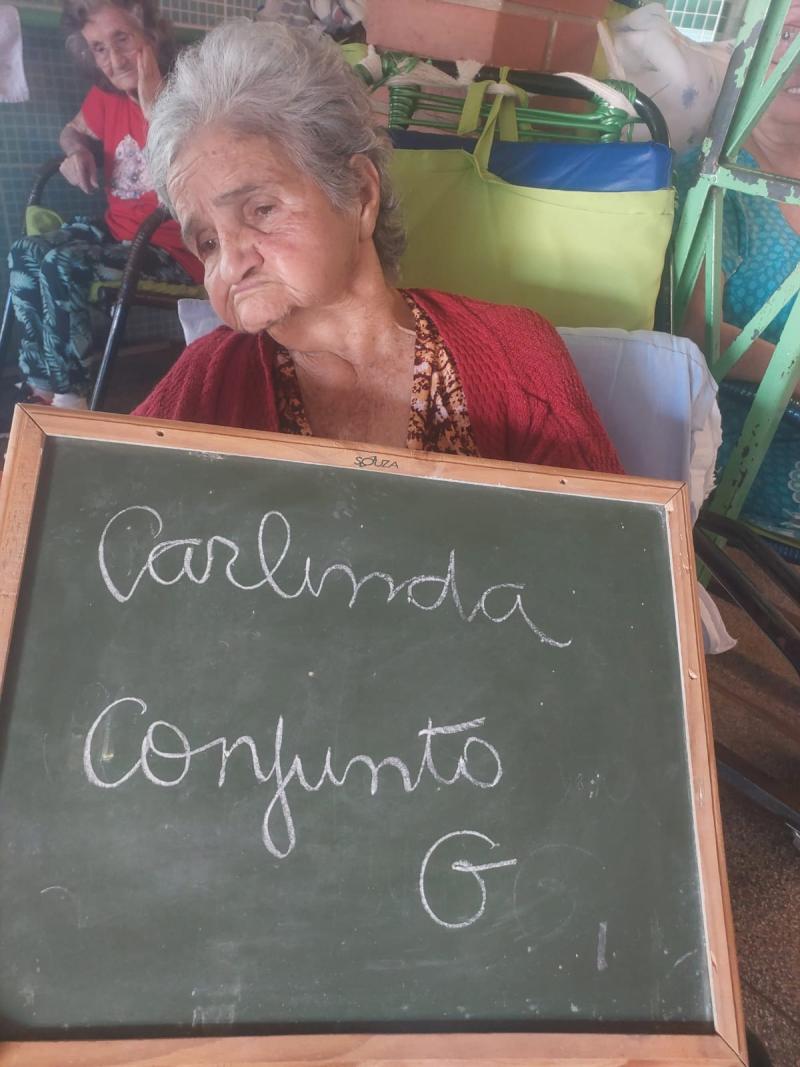 SOUZA
Carlinda
Conjunto
G